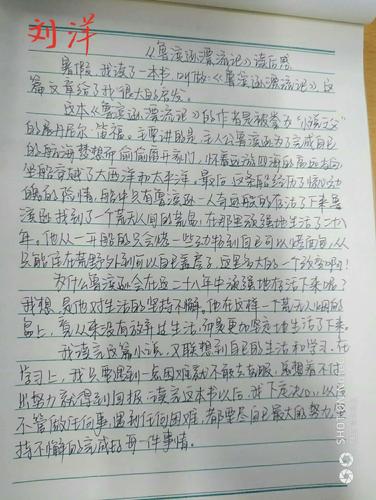 刘洋
《鲁滨逊漂流记》读后感
暑假,我读了一本书,叫做《鲁滨逊漂流记》这
篇文章给了我很大的启发。
这本《鲁滨逊漂流记》的作者是被誉为"小说之父"
的丹尼尔·笛福。主要讲的是:主人公鲁滨逊为了完成自己
的航海梦想而偷偷离开家门,怀着远游四海的高远志向
坐船穿越了大西洋和太平洋。最后这条船经历了惊心动
魄的险情,船中只有鲁滨逊一人奇迹般的存活了下来鲁
滨逊找到了一个荒无人烟的荒岛,在那里顽强地生活了二十八
年。他从一开始的只会烤一些动物到自己可以烤面包,从
只能住在荒野外到可以自己盖房子,这是多大的一个改变啊!
为什么鲁滨逊会在这二十八年中顽强地存活下来呢?
我想是他对生活的坚持不懈。他在这样一个荒无人烟的
岛上,看从来没有放弃过生活,而是更加坚定地生活了下来。
我读完这篇小说,又联想到自己的生活和学习。在
学习上,我只要遇到一点困难就不敢去克服,总想着不付
出努力就得到回报。读完这本书以后,我下定决心,以后
不管做任何事,遇到任何困难,都要尽自己最大的努力,坚
持不懈的完成好每一件事情。
SHOT ON